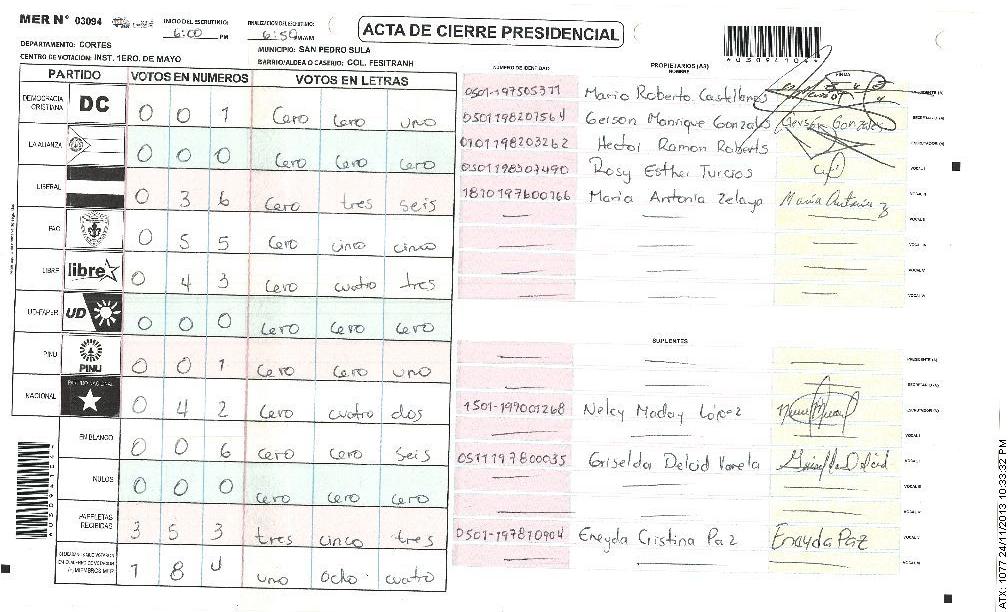 MER N° 03094 INICIO DEL ESCRUTINIO: 6:00 PM FINALIZACION DEL ESCRUTINIO: 6:59 PM/AM
ACTA DE CIERRE PRESIDENCIAL
DEPARTAMENTO: CORTES MUNICIPIO: SAN PEDRO SULA
CENTRO DE VOTACION: INST. 1ERO. DE MAYO BARRIO/ALDEA O CASERIO: COL. FESITRANH
PARTIDO VOTOS EN NUMEROS VOTOS EN LETRAS
DEMOCRACIA CRISTIANA DC 0 0 1 Cero Cero uno
LA ALIANZA 0 0 0 Cero Cero Cero
LIBERAL 0 3 6 Cero tres seis
PAC 0 5 5 Cero cinco cinco
LIBRE libre 0 4 3 Cero cuatro tres
UD-FAPER UD 0 0 0 Cero Cero Cero
PINU PINU 0 0 1 Cero Cero uno
NACIONAL 0 4 2 Cero cuatro dos
EN BLANCO 0 0 6 Cero Cero Seis
NULOS 0 0 0 Cero Cero Cero
PAPELETAS RECIBIDAS 3 5 3 tres cinco tres
1 8 4 uno ocho cuatro
NUMERO DE IDENTIDAD PROPIETARIOS (AS) NOMBRE FIRMA
Mario Roberto Castellanos
0501198207564 Gerson Monrique Gonzales Gerson Gonzales
0101198203262 Hector Ramon Roberts
0501198307490 Rosy Esther Turcios
Maria Antonia Zelaya Maria Antonia Z
SUPLENTES
1501-199001268 Nelcy Maday López
0511197800035 Griselda Delcid Varela
0501-197810904 Eneyda Cristina Paz Eneyda Paz
ATX: 1077 24/11/2013 10:33:32 PM